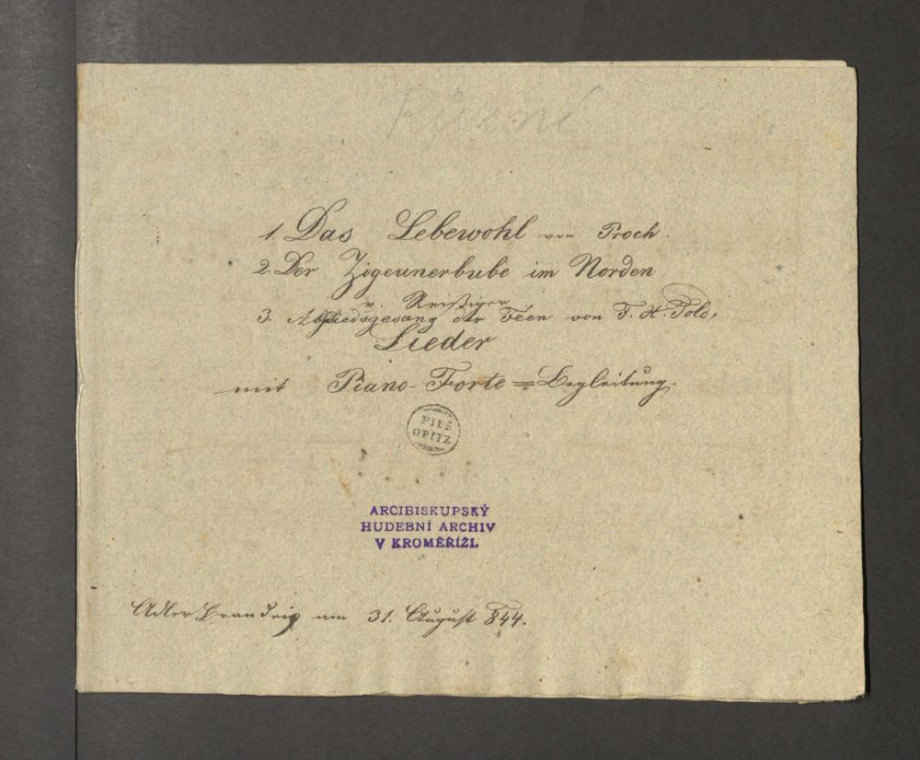 1. Das Lebewohl von Proch.
2. Der Zigeunerbube im Norden
v. Reißiger
3. Abschiedsgesang der Feen von T. H. Told,
Lieder
mit Piano-Forte=Begleitung.
OPITZ
ARCIBISKUPSKÝ
HUDEBNÍ ARCHIV
V KROMĚŘÍŽI.
am 31. August 844.